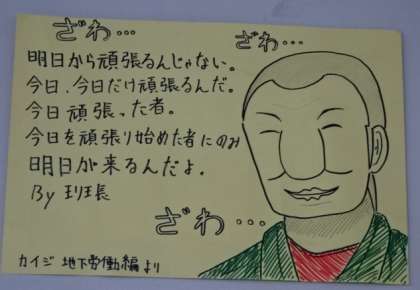 ざわ…
ざわ…
明日から頑張るんじゃない。
今日、今日だけ頑張るんだ。
今日頑張った者。
今日を頑張り始めた者にのみ
明日が来るんだよ。
By 班長
ざわ…
カイジ 地下労働編より